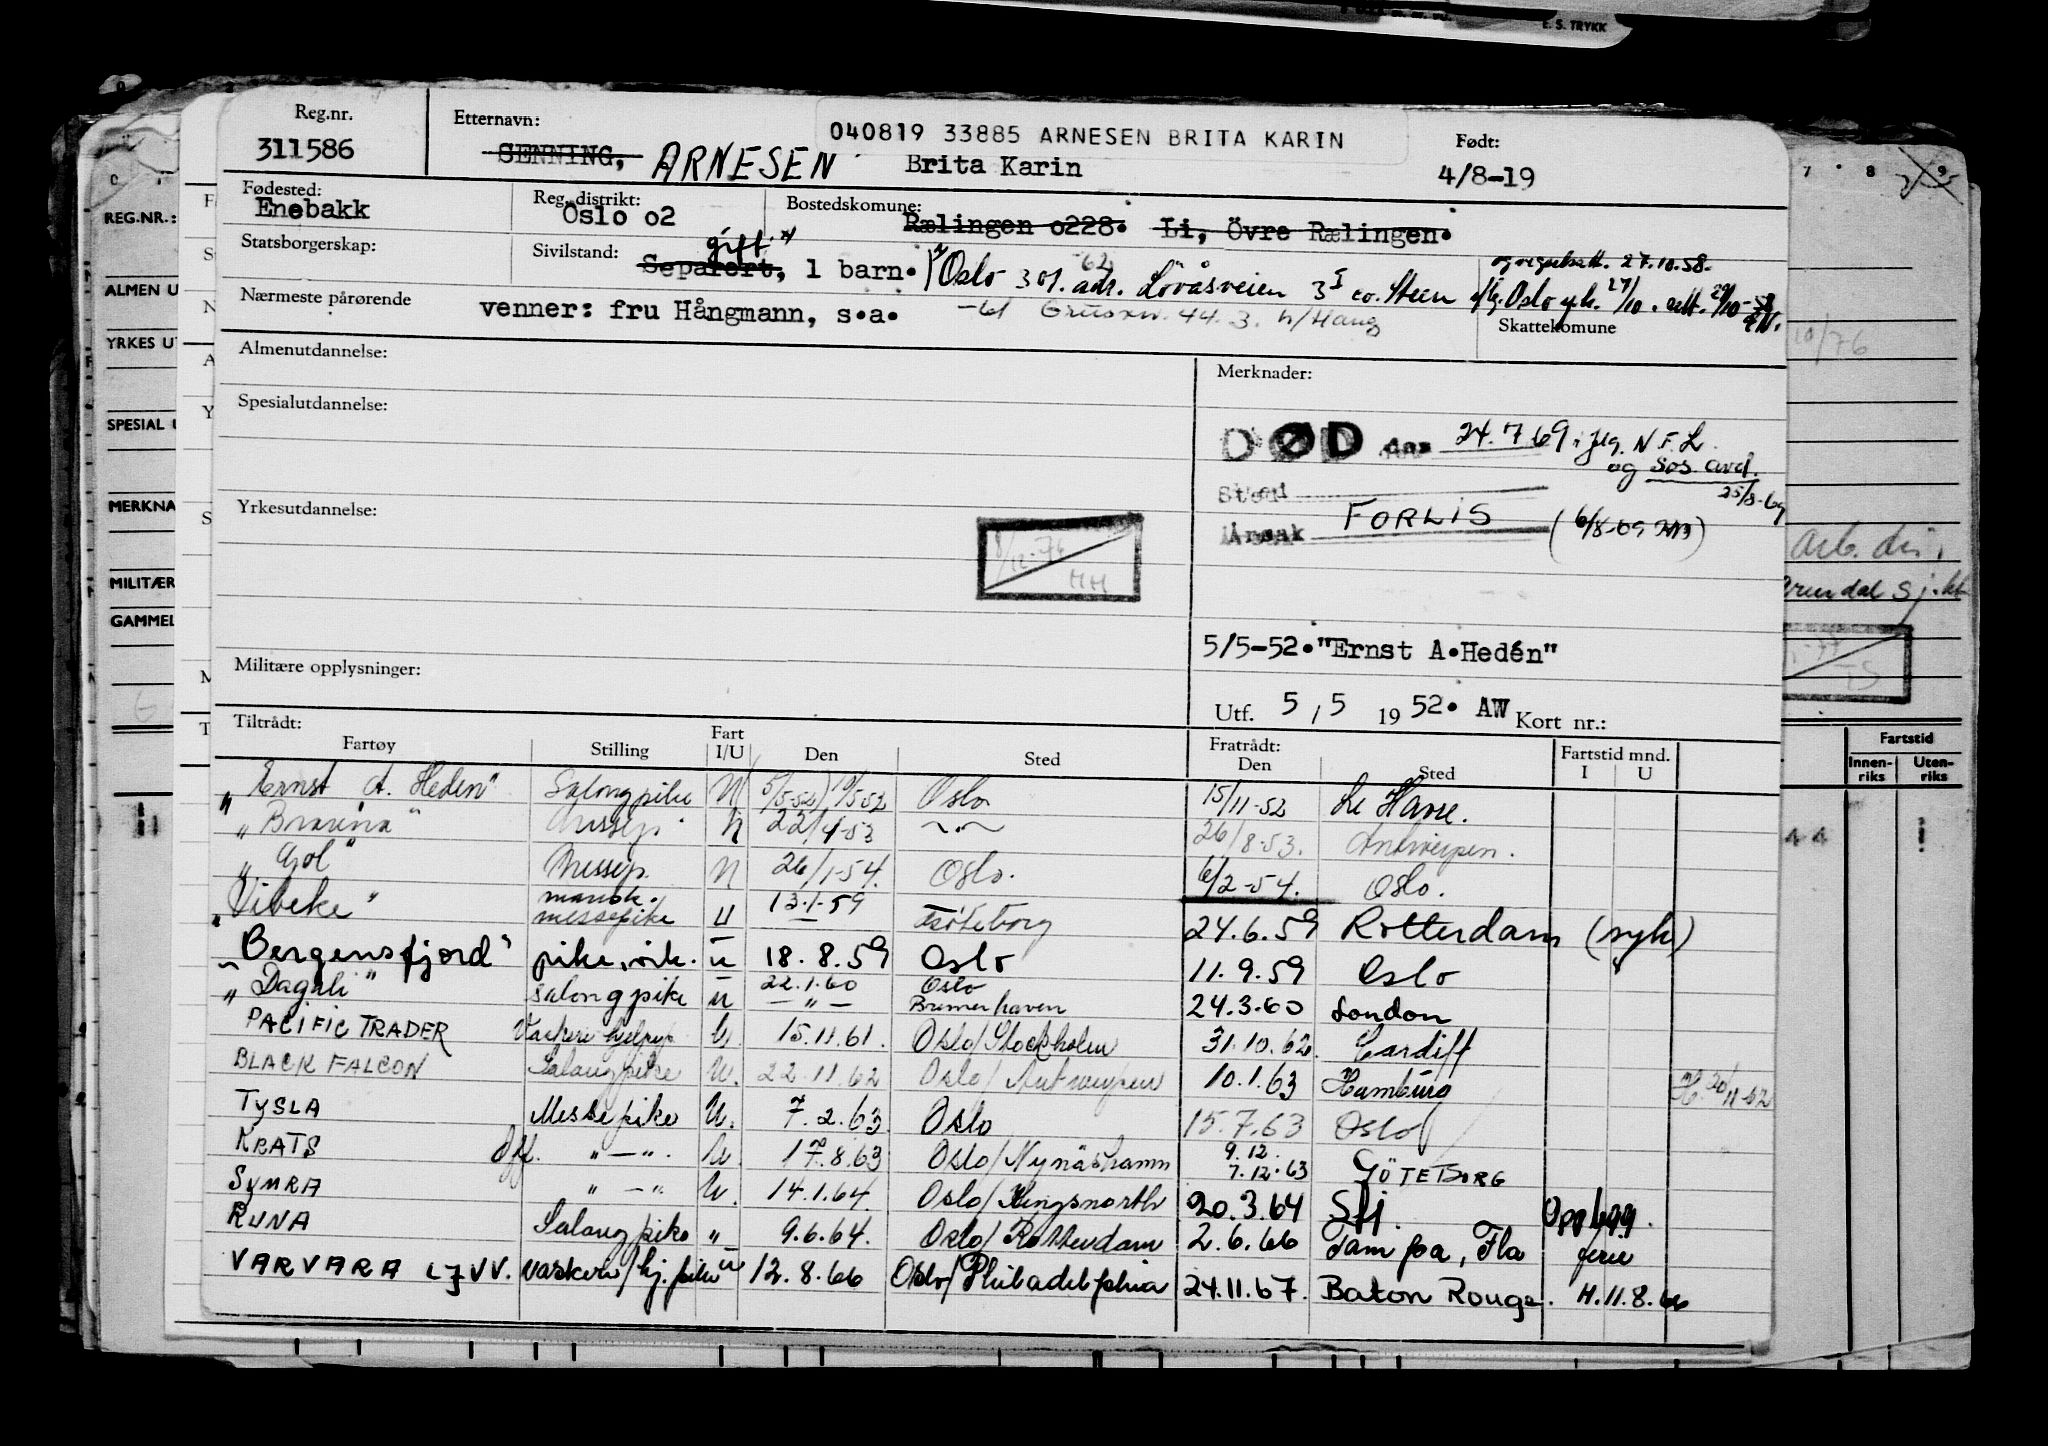 E. S. TRYKK
Reg.nr. Etternavn: 040819 33885 ARNESEN BRITA KARIN Født:
311586 SENNING, ARNESEN Brita Karin 4/8-19
Fødested: Reg. distrikt: Bostedskomune:
Enebakk Oslo o2 Rælingen o228. Li, Övre Rælingen.
Statsborgerskap: Sivilstand: gift
Separert, 1 barn. Oslo 301. adr. Lövåsveien 3 co. Steen
27.10.58.
Nærmeste pårørende venner: fru Hångmann, s.a. Skattekomune
Almenutdannelse: Merknader:
Spesialutdannelse:
DØD den 24.7.69 N.F.L.
og Sos. avd.
25/8-69
Sted
Yrkesutdannelse: Årsak FORLIS (6/8-69
HH
5/5-52."Ernst A.Hedén"
Militære opplysninger:
Utf. 5 / 5 1952. AW Kort nr.:
Tiltrådt: Fart Fratrådt: Fartstid mnd.
Fartøy Stilling I/U Den Sted Den Sted I U
"Ernst A. Heden" Salongpike U 5/5-52 10/5-52 Oslo 15/11-52 Le Havre.
22/4-53 26/8-53. Antwerpen.
"Gol" Messep. U 26/1-54. Oslo. 6/2-54. Oslo.
"Vibeke" messepike U 13-1-59 Göteborg 24.6.59 Rotterdam (syk)
"Bergensfjord" pike, U 18.8.59 Oslo 11.9.59 Oslo
"Dagali" salongpike U 22.1.60 Oslo Bremerhaven 24.3.60 London
PACIFIC TRADER U. 15.11.61. Oslo/Stockholm 31.10.62. Cardiff
BLACK FALCON Salongpike U. 22.11.62 Oslo/Antwerpen 10.1.63 Hamburg H. 20/11-62
TYSLA Messepike U. 7.2.63 Oslo 15.7.63 Oslo
KRATS Off. " — " . U. 17.8.63 Oslo/Nynäshamn 9.12. 7.12.63 GÖTEBORG
SYMRA " — " U. 14.1.64. Oslo/Kingsnorth 20.3.64 Sfj. Opplagg.
RUNA Salongpike " 9.6.64. Oslo/Rotterdam 2.6.66 Tampa, Fla ferie
VARVARA LJVV. vaskeri/hj.pike U 12.8.66 Oslo/Philadelphia 24.11.67. Baton Rouge. H.11.8.66
REG.NR.:
ALMEN U
YRKES UT
SPESIAL U
MERKNA
MILITÆR
GAMMEL
7 8 9
10/76
Arb. dir.
Arendal sj.kt
Fartstid
Innen-riks Uten-riks